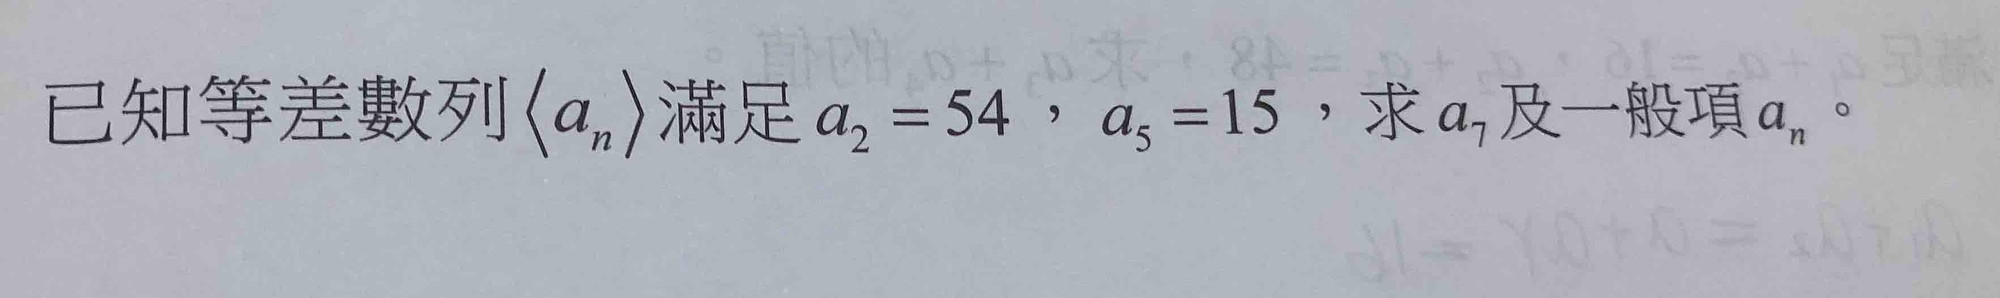 已知等差數列⟨aₙ⟩滿足 a₂ = 54，a₅ = 15，求 a₇ 及一般項 aₙ。